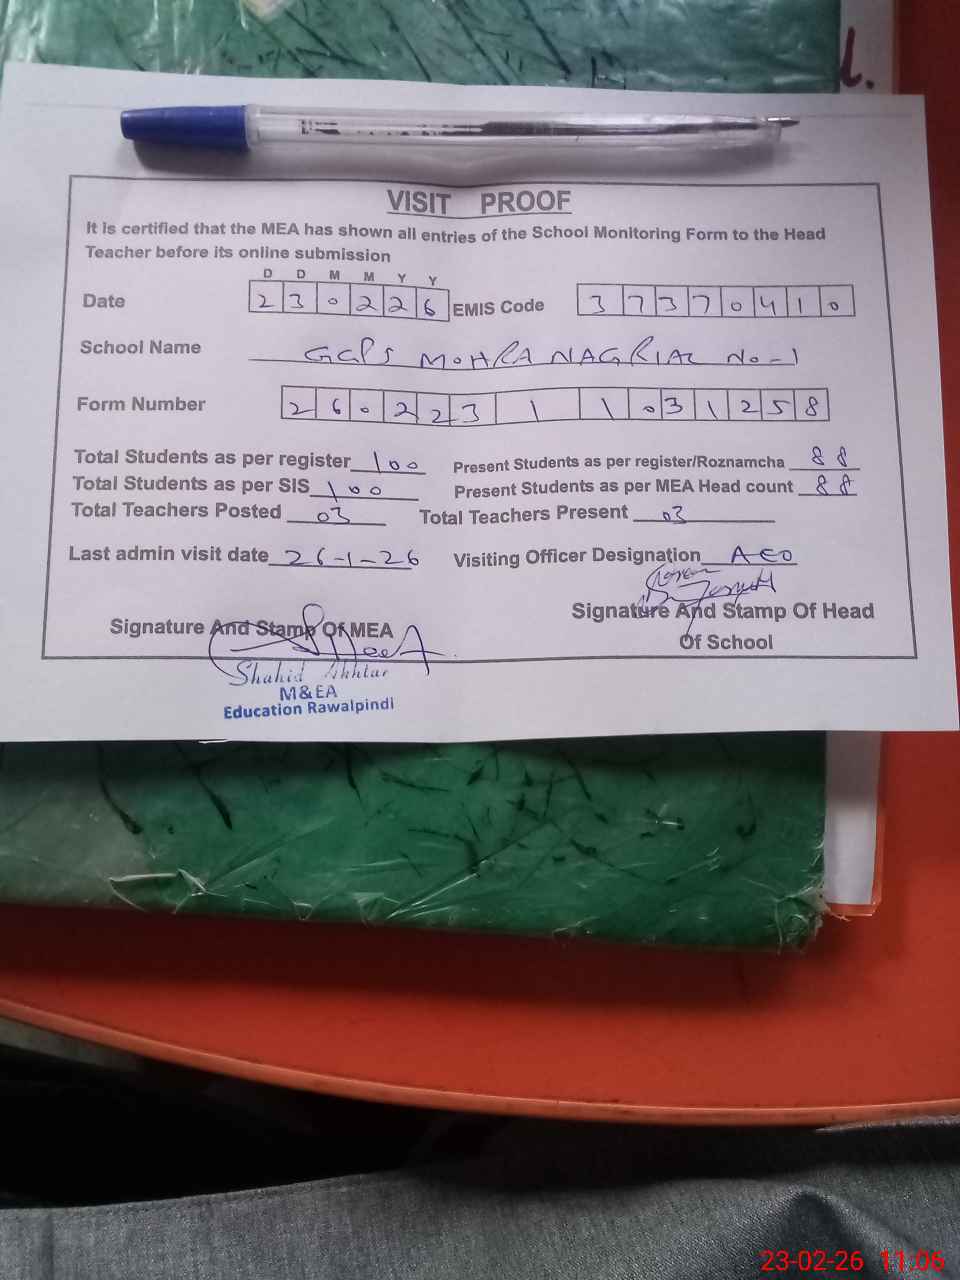 l.
VISIT PROOF
It is certified that the MEA has shown all entries of the School Monitoring Form to the Head
Teacher before its online submission
D D M M Y Y
Date 2 3 0 2 2 6 EMIS Code 3 7 3 7 0 4 1 0
School Name GGPS MOHRA NAGRIAL No-1
Form Number 2 6 0 2 2 3 1 1 0 3 1 2 5 8
Total Students as per register 100 Present Students as per register/Roznamcha 88
Total Students as per SIS 100 Present Students as per MEA Head count 88
Total Teachers Posted 03 Total Teachers Present 03
Last admin visit date 26-1-26 Visiting Officer Designation AEO
Signature And Stamp Of MEA
Signature And Stamp Of Head
Of School
Shahid Akhtar
M&EA
Education Rawalpindi
23-02-26 11:06